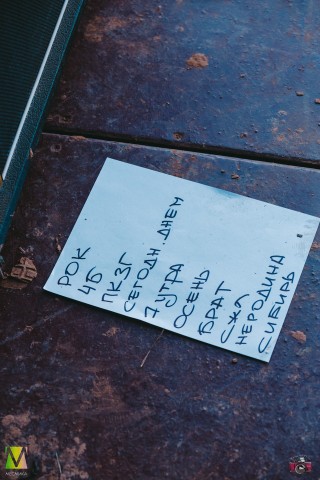 РОК
4Б
ПКЗГ
СЕГОДН. ДНЕМ
7 УТРА
ОСЕНЬ
БРАТ
СЖЛ
НЕРОДИНА
СИБИРЬ